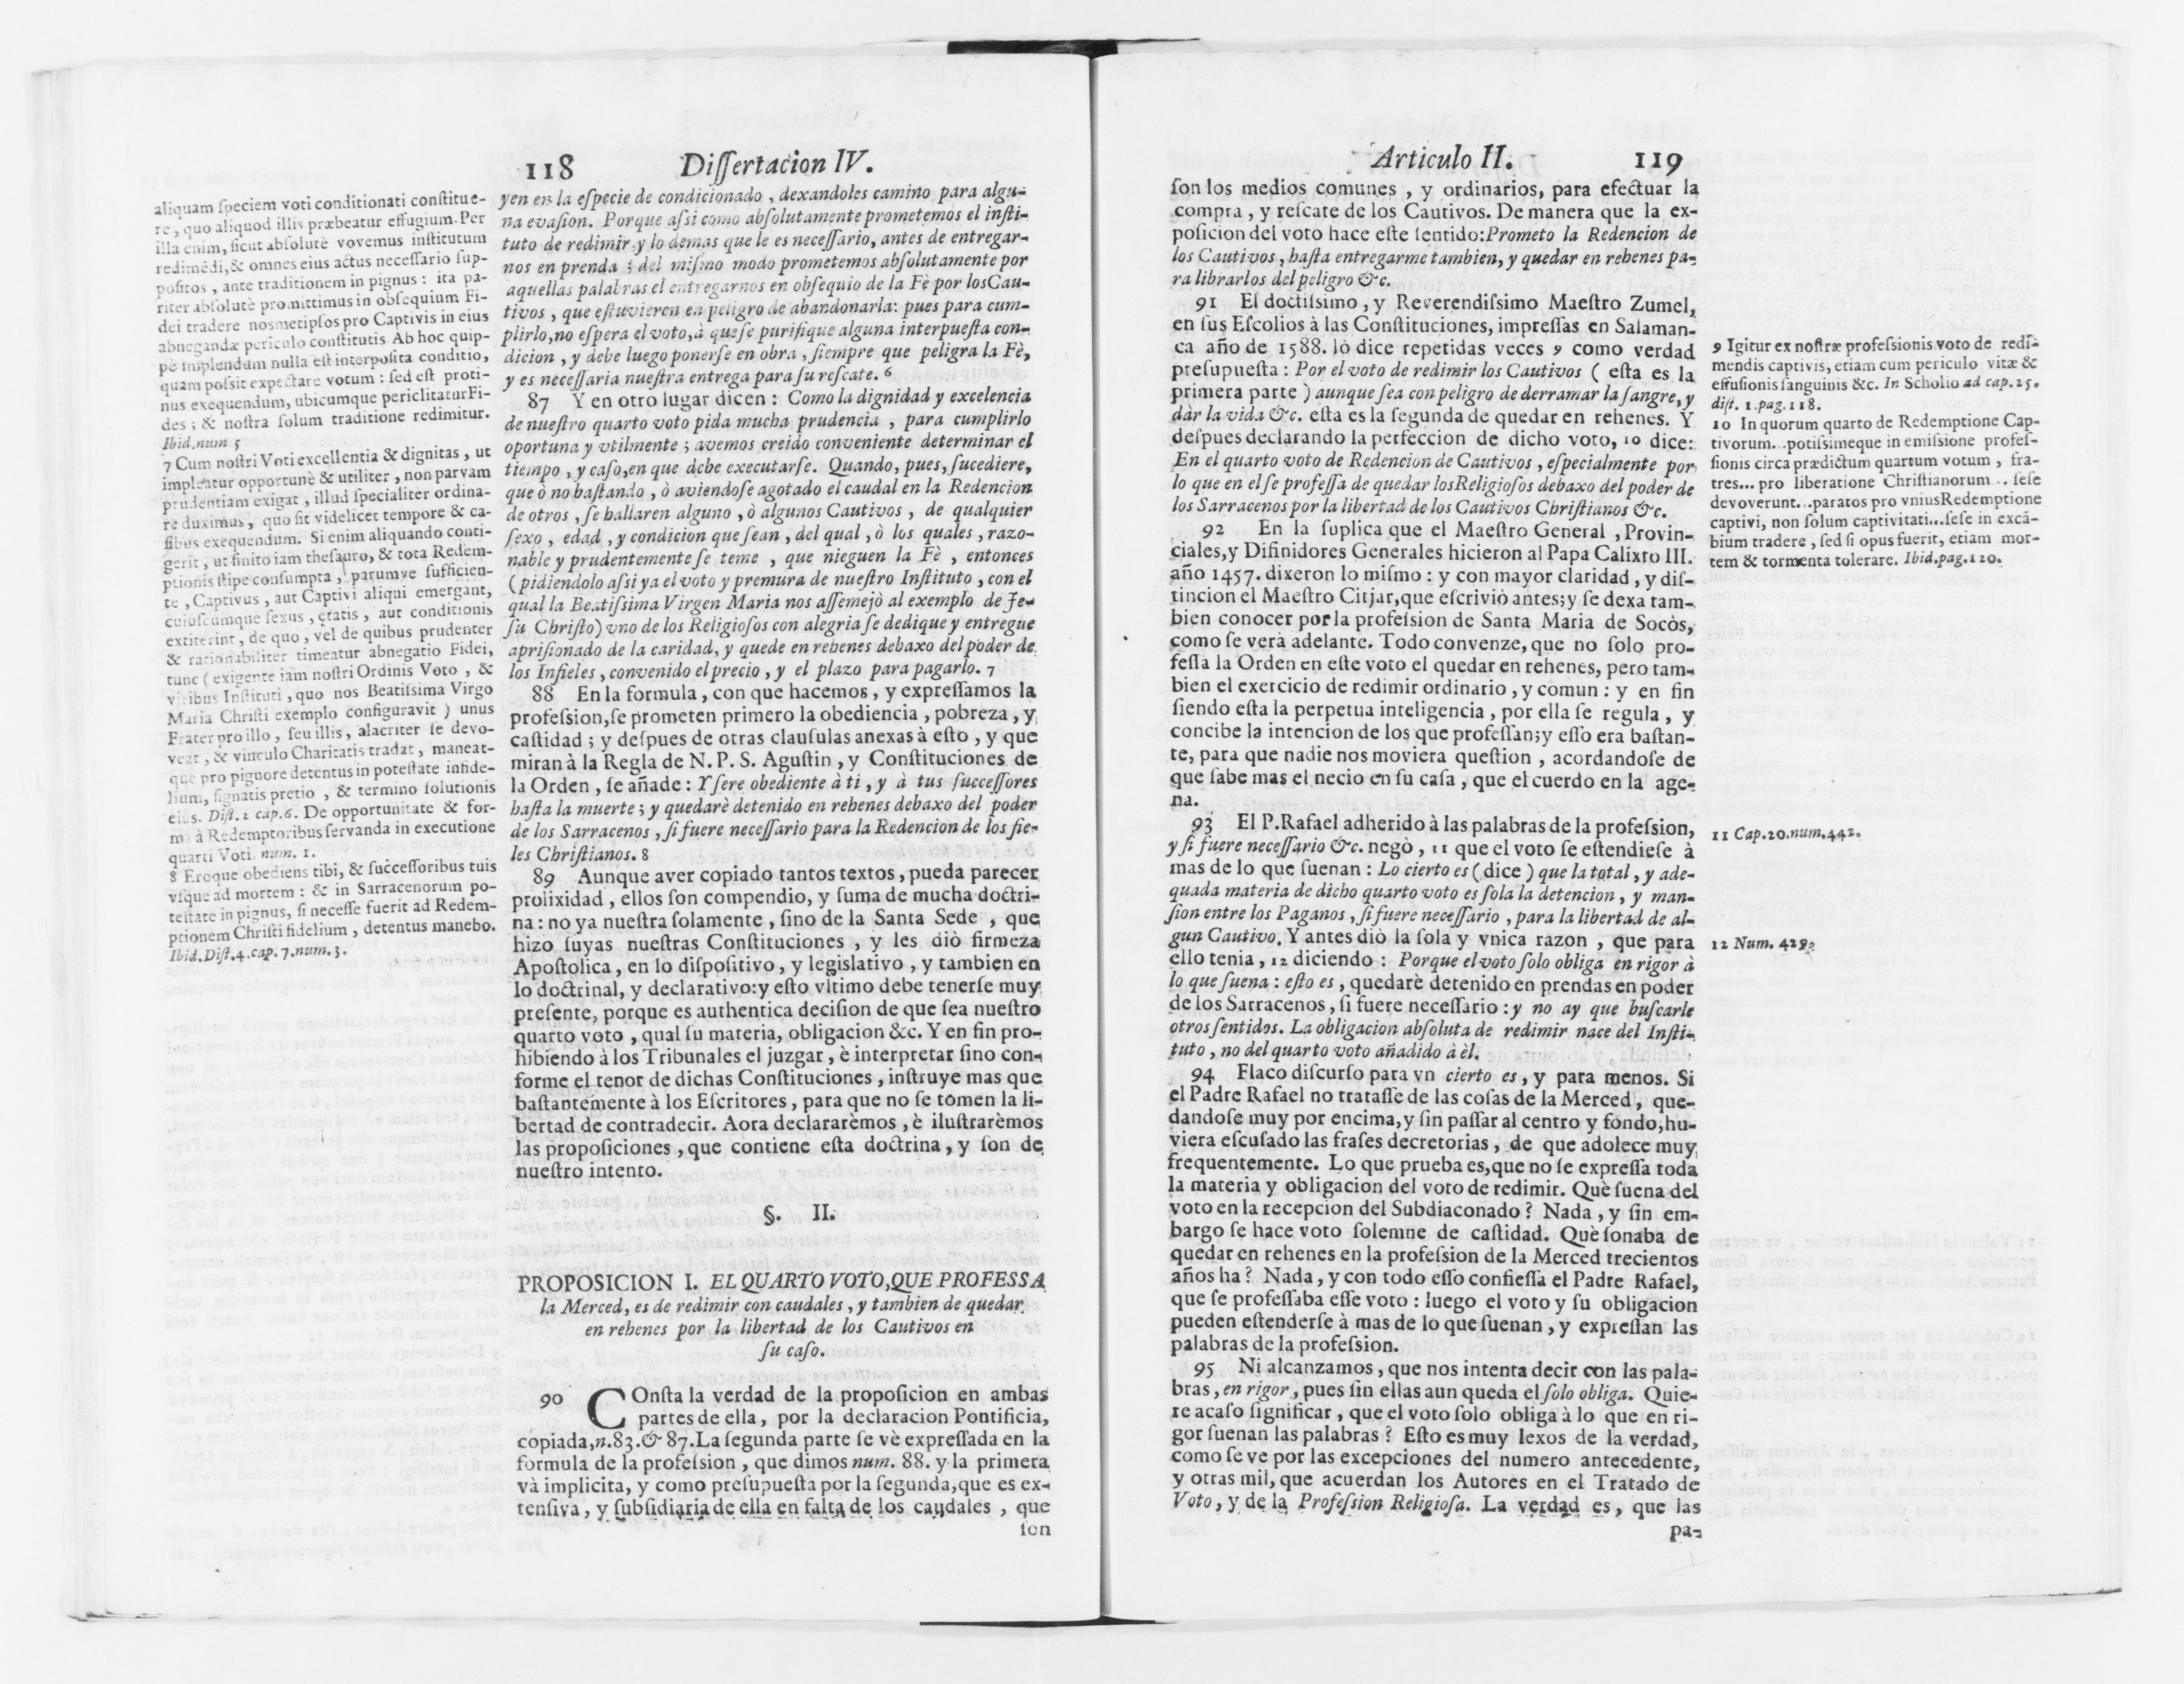 118 Dissertacion IV.
aliquam speciem voti conditionati constitue-
re, quo aliquod illis præbeatur effugium. Per
illa enim, sicut absolutè vovemus institutum
redimēdi, & omnes eius actus necessario sup-
positos, ante traditionem in pignus: ita pa-
riter absolutè promittimus in obsequium Fi-
dei tradere nosmetipsos pro Captivis in eius
abnegandæ periculo constitutis. Ab hoc quip-
pè implendum nulla est interposita conditio,
quam possit expectare votum: sed est proti-
nus exequendum, ubicumque periclitatur Fi-
des; & nostra solum traditione redimitur.
Ibid.num 5
7 Cum nostri Voti excellentia & dignitas, ut
impleatur opportunè & utiliter, non parvam
prudentiam exigat, illud specialiter ordina-
re duximus, quo sit videlicet tempore & ca-
sibus exequendum. Si enim aliquando conti-
gerit, ut finito iam thesauro, & tota Redem-
ptionis stipe consumpta, parumve sufficien-
te, Captivus, aut Captivi aliqui emergant,
cuiuscumque sexus, ętatis, aut conditionis
extiterint, de quo, vel de quibus prudenter
& rationabiliter timeatur abnegatio Fidei,
tunc (exigente iam nostri Ordinis Voto, &
viribus Instituti, quo nos Beatissima Virgo
Maria Christi exemplo configuravit) unus
Frater pro illo, seu illis, alacriter se devo-
veat, & vinculo Charitatis tradat, maneat-
que pro pignore detentus in potestate infide-
lium, signatis pretio, & termino solutionis
eius. Dist. 2 cap.6. De opportunitate & for-
ma à Redemptoribus servanda in executione
quarti Voti num. 1.
8 Eroque obediens tibi, & successoribus tuis
vsque ad mortem: & in Sarracenorum po-
testate in pignus, si necesse fuerit ad Redem-
ptionem Christi fidelium, detentus manebo.
Ibid.Dist.4.cap.7.num.3.
yen en la especie de condicionado, dexandoles camino para algu-
na evasion. Porque assi como absolutamente prometemos el insti-
tuto de redimir, y lo demas que le es necessario, antes de entregar-
nos en prenda; del mismo modo prometemos absolutamente por
aquellas palabras el entregarnos en obsequio de la Fè por los Cau-
tivos, que estuvieren en peligro de abandonarla: pues para cum-
plirlo, no espera el voto, à que se purifique alguna interpuesta con-
dicion, y debe luego ponerse en obra, siempre que peligra la Fè,
y es necessaria nuestra entrega para su rescate. 6
87 Y en otro lugar dicen: Como la dignidad y excelencia
de nuestro quarto voto pida mucha prudencia, para cumplirlo
oportuna y vtilmente; avemos creido conveniente determinar el
tiempo, y caso, en que debe executarse. Quando, pues, sucediere,
que ò no bastando, ò aviendose agotado el caudal en la Redencion
de otros, se hallaren alguno, ò algunos Cautivos, de qualquier
sexo, edad, y condicion que sean, del qual, ò los quales, razo-
nable y prudentemente se teme, que nieguen la Fè, entonces
(pidiendolo assi ya el voto y premura de nuestro Instituto, con el
qual la Beatissima Virgen Maria nos assemejò al exemplo de Je-
su Christo) vno de los Religiosos con alegria se dedique y entregue
aprisionado de la caridad, y quede en rehenes debaxo del poder de
los Infieles, convenido el precio, y el plazo para pagarlo. 7
88 En la formula, con que hacemos, y expressamos la
profession, se prometen primero la obediencia, pobreza, y
castidad; y despues de otras clausulas anexas à esto, y que
miran à la Regla de N. P. S. Agustin, y Constituciones de
la Orden, se añade: Y sere obediente à ti, y à tus successores
hasta la muerte; y quedarè detenido en rehenes debaxo del poder
de los Sarracenos, si fuere necessario para la Redencion de los fie-
les Christianos. 8
89 Aunque aver copiado tantos textos, pueda parecer
prolixidad, ellos son compendio, y suma de mucha doctri-
na: no ya nuestra solamente, sino de la Santa Sede, que
hizo suyas nuestras Constituciones, y les diò firmeza
Apostolica, en lo dispositivo, y legislativo, y tambien en
lo doctrinal, y declarativo: y esto vltimo debe tenerse muy
presente, porque es authentica decision de que sea nuestro
quarto voto, qual su materia, obligacion &c. Y en fin pro-
hibiendo à los Tribunales el juzgar, è interpretar sino con-
forme el tenor de dichas Constituciones, instruye mas que
bastantemente à los Escritores, para que no se tomen la li-
bertad de contradecir. Aora declararèmos, è ilustrarèmos
las proposiciones, que contiene esta doctrina, y son de
nuestro intento.
§. II.
PROPOSICION I. EL QUARTO VOTO, QUE PROFESSA
la Merced, es de redimir con caudales, y tambien de quedar
en rehenes por la libertad de los Cautivos en
su caso.
90 COnsta la verdad de la proposicion en ambas
partes de ella, por la declaracion Pontificia,
copiada, n.83.& 87. La segunda parte se vè expressada en la
formula de la profession, que dimos num. 88. y la primera
và implicita, y como presupuesta por la segunda, que es ex-
tensiva, y subsidiaria de ella en falta de los caudales, que
son
Articulo II. 119
son los medios comunes, y ordinarios, para efectuar la
compra, y rescate de los Cautivos. De manera que la ex-
posicion del voto hace este sentido: Prometo la Redencion de
los Cautivos, hasta entregarme tambien, y quedar en rehenes pa-
ra librarlos del peligro &c.
91 El doctissimo, y Reverendissimo Maestro Zumel,
en sus Escolios à las Constituciones, impressas en Salaman-
ca año de 1588. lo dice repetidas veces 9 como verdad
presupuesta: Por el voto de redimir los Cautivos (esta es la
primera parte) aunque sea con peligro de derramar la sangre, y
dàr la vida &c. esta es la segunda de quedar en rehenes. Y
despues declarando la perfeccion de dicho voto, 10 dice:
En el quarto voto de Redencion de Cautivos, especialmente por
lo que en el se professa de quedar los Religiosos debaxo del poder de
los Sarracenos por la libertad de los Cautivos Christianos &c.
92 En la suplica que el Maestro General, Provin-
ciales, y Difinidores Generales hicieron al Papa Calixto III.
año 1457. dixeron lo mismo: y con mayor claridad, y dis-
tincion el Maestro Citjar, que escriviò antes; y se dexa tam-
bien conocer por la profession de Santa Maria de Socòs,
como se verà adelante. Todo convenze, que no solo pro-
fessa la Orden en este voto el quedar en rehenes, pero tam-
bien el exercicio de redimir ordinario, y comun: y en fin
siendo esta la perpetua inteligencia, por ella se regula, y
concibe la intencion de los que professan; y esso era bastan-
te, para que nadie nos moviera question, acordandose de
que sabe mas el necio en su casa, que el cuerdo en la age-
na.
93 El P. Rafael adherido à las palabras de la profession,
y si fuere necessario &c. negò, 11 que el voto se estendiese à
mas de lo que suenan: Lo cierto es (dice) que la total, y ade-
quada materia de dicho quarto voto es sola la detencion, y man-
sion entre los Paganos, si fuere necessario, para la libertad de al-
gun Cautivo. Y antes diò la sola y vnica razon, que para
ello tenia, 12 diciendo: Porque el voto solo obliga en rigor à
lo que suena: esto es, quedarè detenido en prendas en poder
de los Sarracenos, si fuere necessario: y no ay que buscarle
otros sentidos. La obligacion absoluta de redimir nace del Insti-
tuto, no del quarto voto añadido à èl.
94 Flaco discurso para vn cierto es, y para menos. Si
el Padre Rafael no tratasse de las cosas de la Merced, que-
dandose muy por encima, y sin passar al centro y fondo, hu-
viera escusado las frases decretorias, de que adolece muy
frequentemente. Lo que prueba es, que no se expressa toda
la materia y obligacion del voto de redimir. Què suena del
voto en la recepcion del Subdiaconado? Nada, y sin em-
bargo se hace voto solemne de castidad. Què sonaba de
quedar en rehenes en la profession de la Merced trecientos
años ha? Nada, y con todo esso confiessa el Padre Rafael,
que se professaba esse voto: luego el voto y su obligacion
pueden estenderse à mas de lo que suenan, y expressan las
palabras de la profession.
95 Ni alcanzamos, que nos intenta decir con las pala-
bras, en rigor, pues sin ellas aun queda el solo obliga. Quie-
re acaso significar, que el voto solo obliga à lo que en ri-
gor suenan las palabras? Esto es muy lexos de la verdad,
como se ve por las excepciones del numero antecedente,
y otras mil, que acuerdan los Autores en el Tratado de
Voto, y de la Profession Religiosa. La verdad es, que las
pa-
9 Igitur ex nostræ professionis voto de redi-
mendis captivis, etiam cum periculo vitæ &
effusionis sanguinis &c. In Scholio ad cap.25.
dist. 1.pag.118.
10 In quorum quarto de Redemptione Cap-
tivorum...potissimeque in emissione profes-
sionis circa prædictum quartum votum, fra-
tres... pro liberatione Christianorum .. sese
devoverunt...paratos pro vnius Redemptione
captivi, non solum captivitati...sese in excā-
bium tradere, sed si opus fuerit, etiam mor-
tem & tormenta tolerare. Ibid.pag.120.
11 Cap.20.num.442.
12 Num. 429.